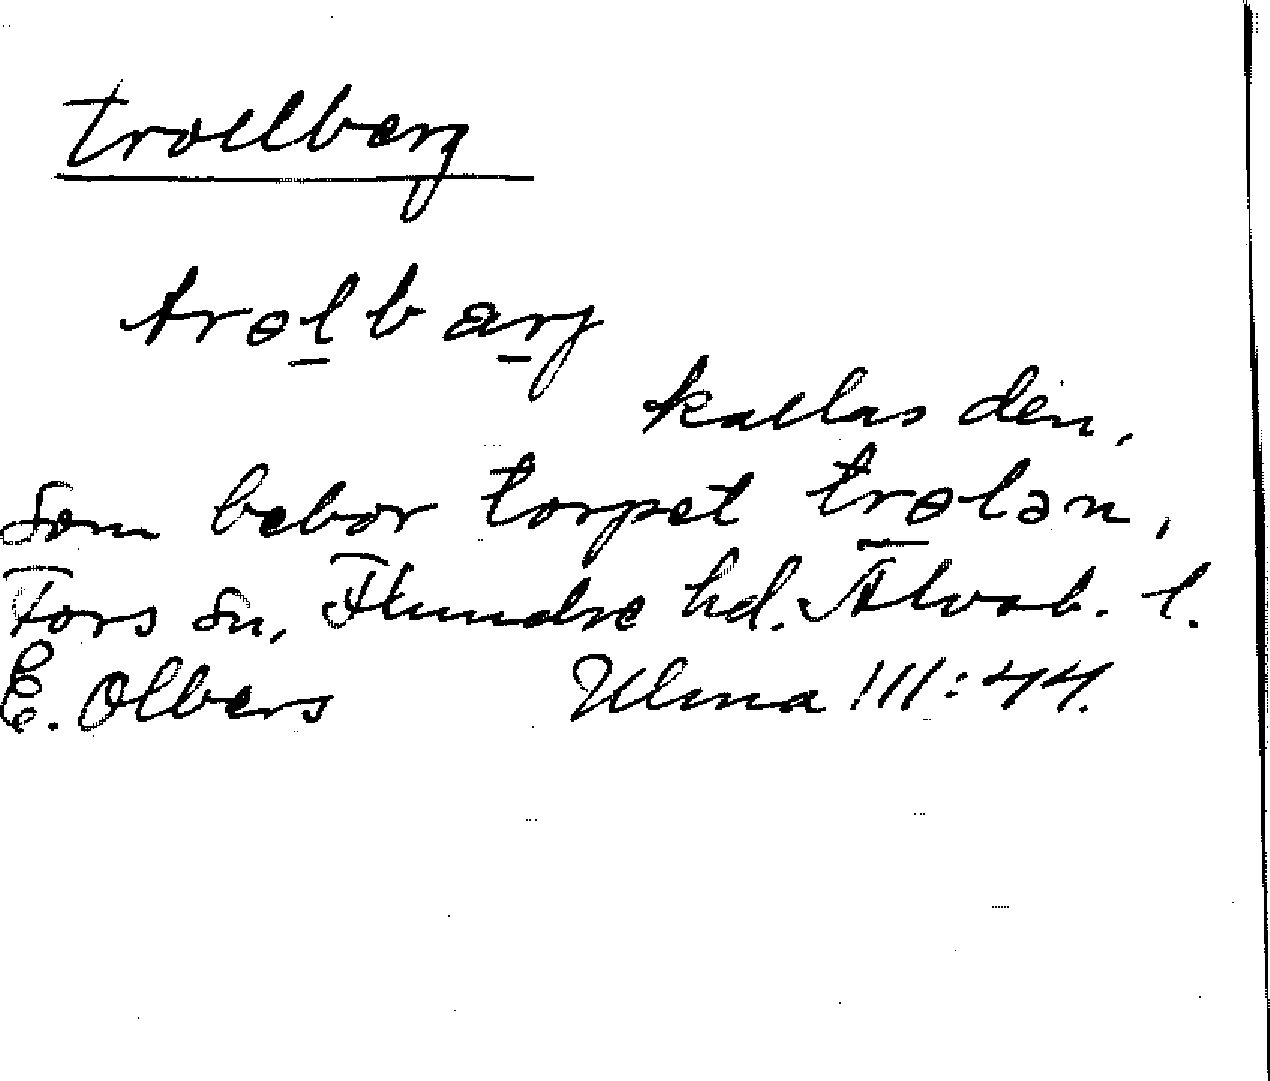 trollberg
trɵlbærj
kallas den,
som bebor torpet trɵlən,
Fors sn, Flundre hd. Älvsb. l.
E. Olbers Ulma 111:44.